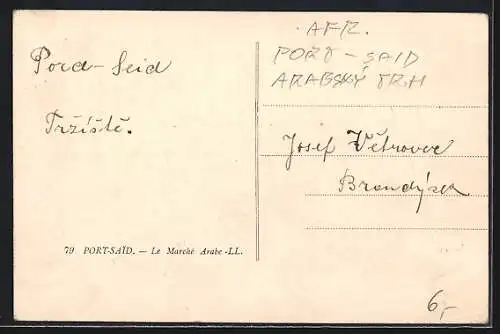 Pord-Seid
Tržíště.
79 PORT-SAÏD. — Le Marché Arabe -LL.
AFR.
PORT-SAID
ARABSKÝ TRH
Josef Větrovec
Brandýsek
6,-